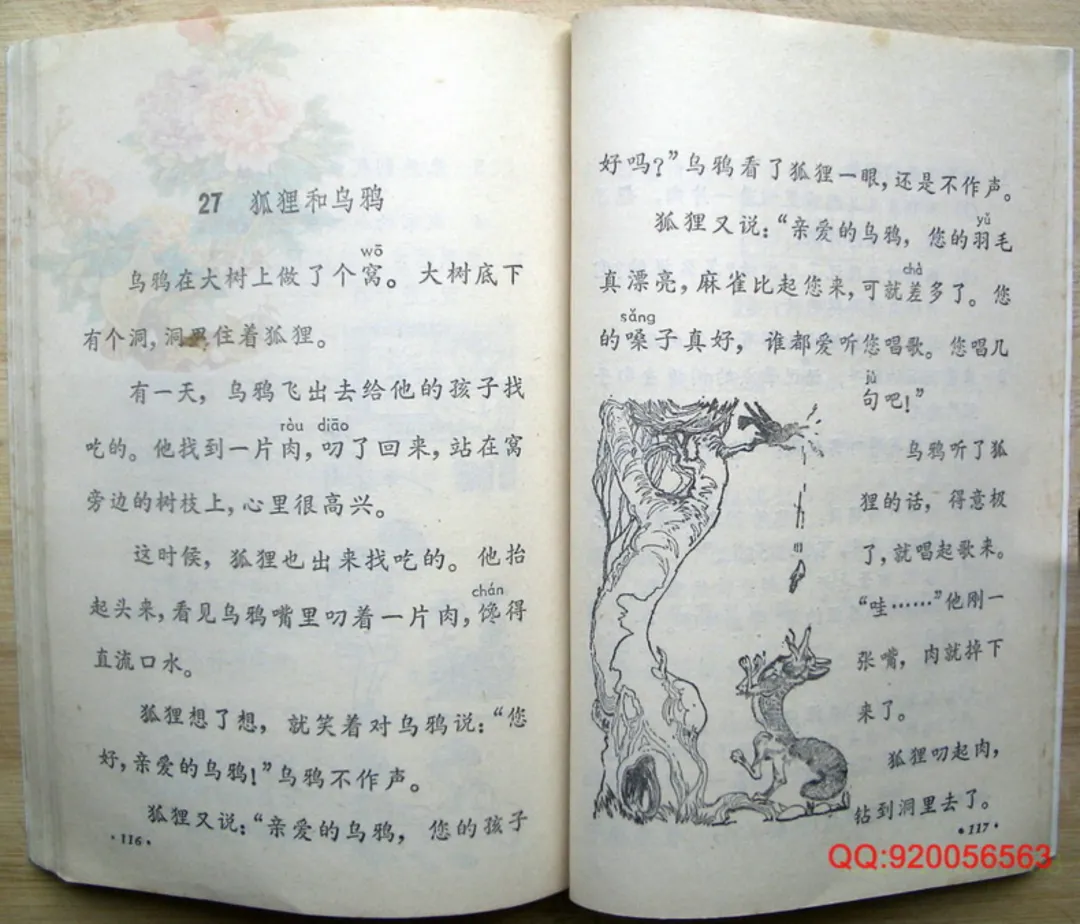 27 狐狸和乌鸦
wō
乌鸦在大树上做了个窝。大树底下
有个洞,洞里住着狐狸。
有一天,乌鸦飞出去给他的孩子找
ròu diāo
吃的。他找到一片肉,叨了回来,站在窝
旁边的树枝上,心里很高兴。
这时候,狐狸也出来找吃的。他抬
chán
起头来,看见乌鸦嘴里叼着一片肉,馋得
直流口水。
狐狸想了想,就笑着对乌鸦说:“您
好,亲爱的乌鸦!”乌鸦不作声。
狐狸又说:“亲爱的乌鸦,您的孩子
·116·
好吗?”乌鸦看了狐狸一眼,还是不作声。
yǔ
狐狸又说:“亲爱的乌鸦,您的羽毛
chà
真漂亮,麻雀比起您来,可就差多了。您
sǎng
的嗓子真好,谁都爱听您唱歌。您唱几
jù
句吧!”
乌鸦听了狐
狸的话,得意极
了,就唱起歌来。
“哇……”他刚一
张嘴,肉就掉下
来了。
狐狸叼起肉,
钻到洞里去了。
·117·
QQ:920056563